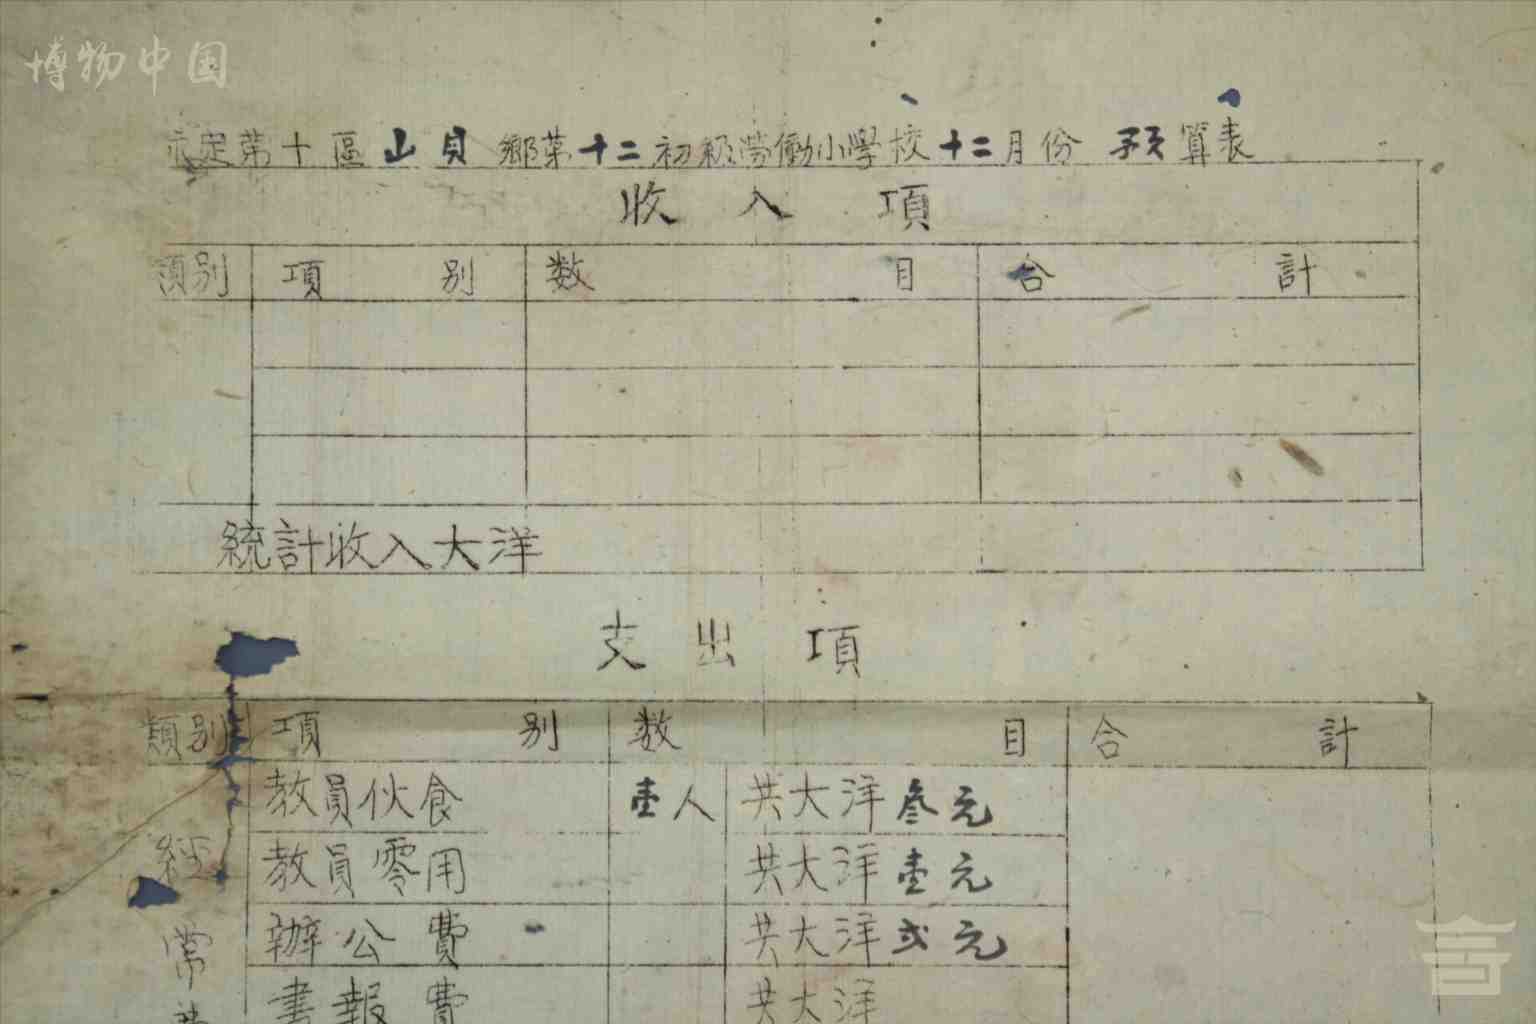 博物中国
永定第十區山貝鄉第十二初級勞働小學校十二月份預算表
收入項
類別 項別 数目 合計
統計收入大洋
支出項
類別 項別 数目 合計
教員伙食 壹人 共大洋叁元
教員零用 共大洋壹元
辦公費 共大洋弍元
書報費 共大洋
經常費